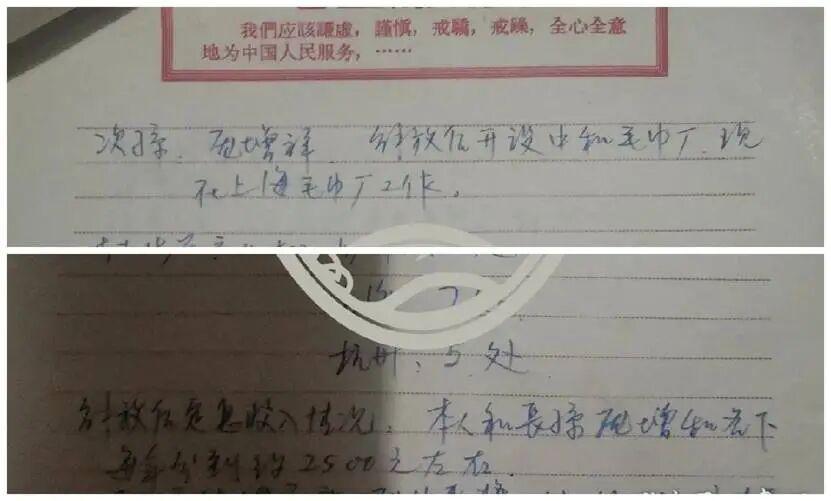 我們应該謙虛，謹慎，戒驕，戒躁，全心全意
地为中国人民服务，……
次孫 增祥 解放后开设中和毛巾厂 现
在上海毛巾厂工作。
杭州、5处
解放后定息收入情况，本人和長孫 增和名下
每年分到约2500元左右